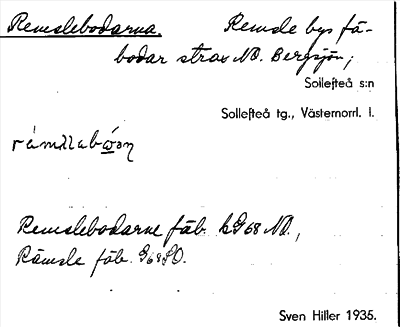 Remslebodarna. Remsle bys fä-
bodar strax NO. Bergsjön;
Sollefteå s:n
Sollefteå tg., Västernorrl. l.
Remslebodarne fäb. G68 NO.,
Rämsle fäb. G68SO.
Sven Hiller 1935.